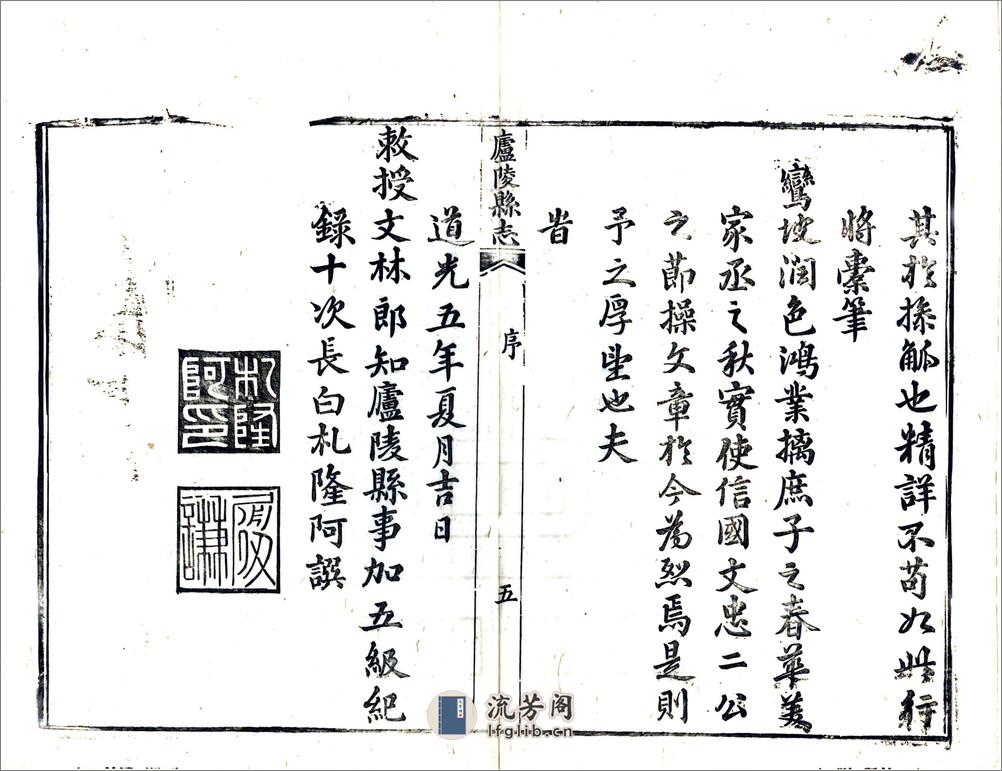 其於操觚也精詳不苟如此行
將橐筆
鸞坡潤色鴻業摛庶子之春華美
家丞之秋實使信國文忠二公
之節操文章於今為烈焉是則
予之厚望也夫
旹
廬陵縣志
序
五
道光五年夏月吉日
敕授文林郎知廬陵縣事加五級紀
錄十次長白札隆阿譔
札隆
阿印
流芳阁
lfglib.cn